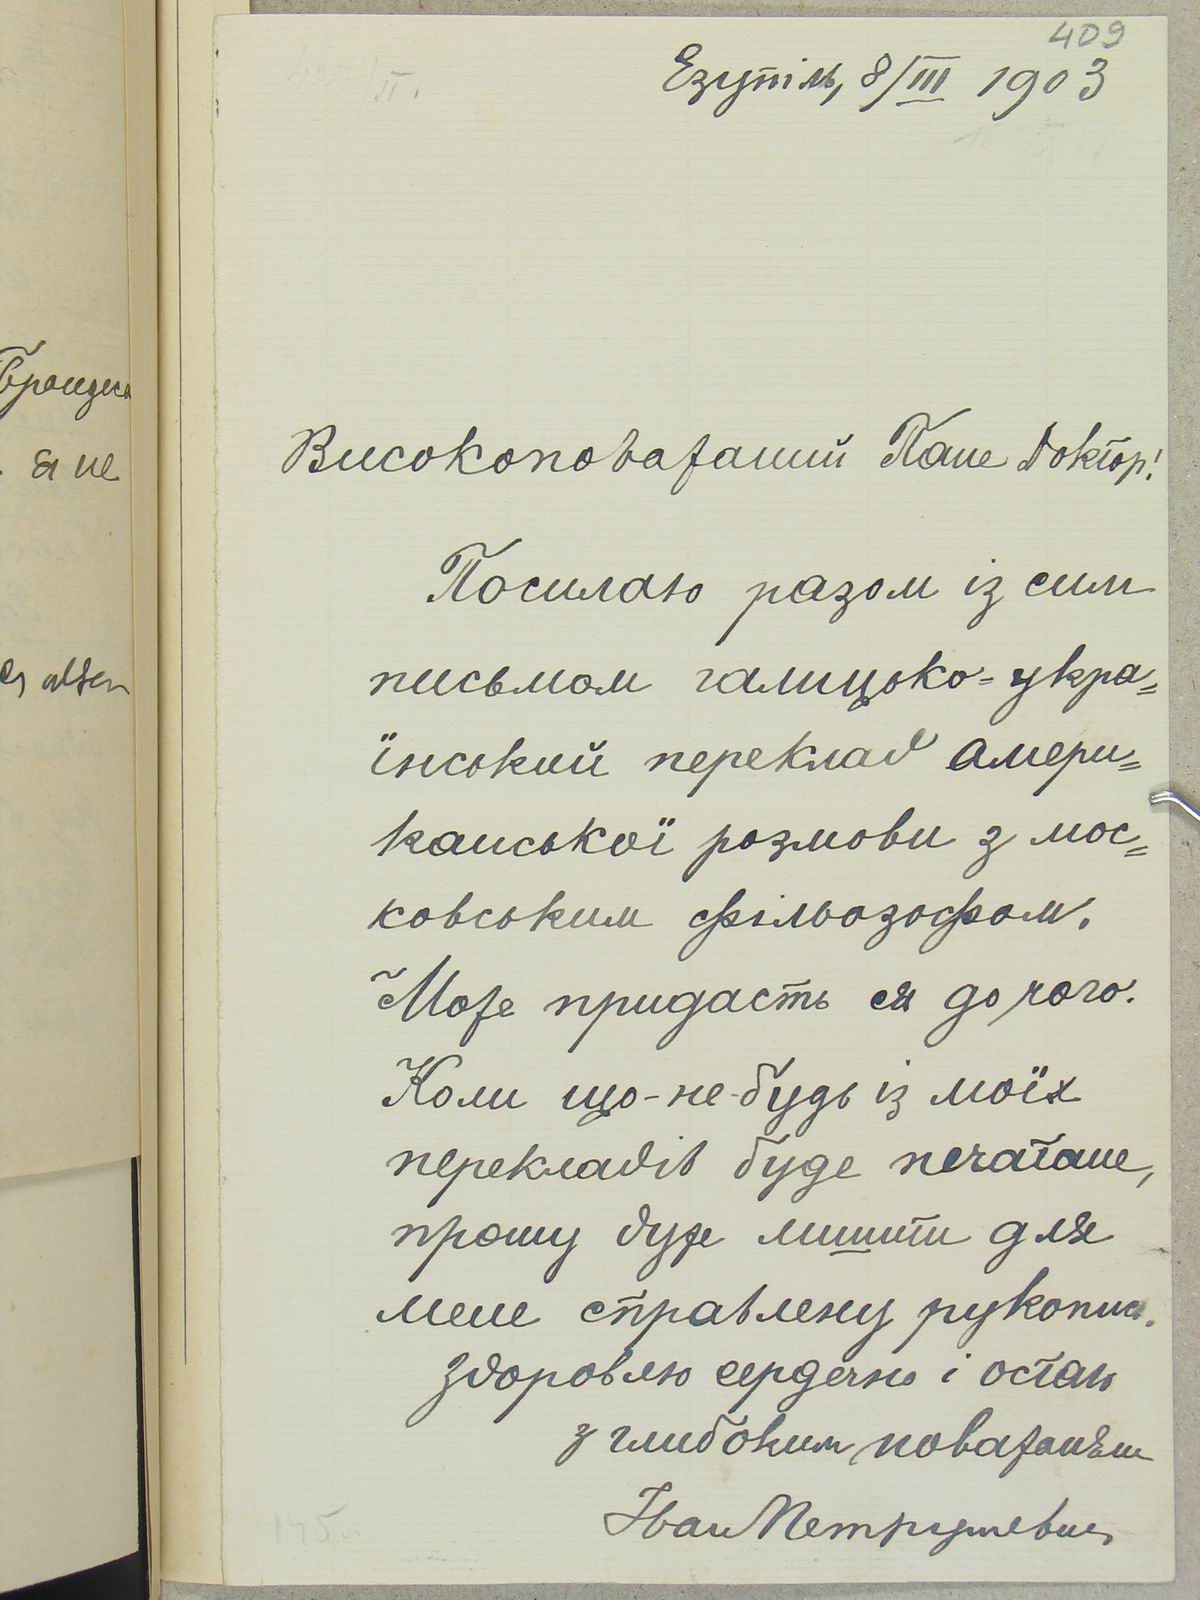 409
Езупіль, 8/III 1903
Високоповажаний Пане Доктор!
Посилаю разом із сим
письмом галицоко-укра=
їнський переклад амери=
канської розмови з мос=
ковським фільозофом.
Може придасть ся до чого.
Коли що-не-будь із моїх
перекладів буде печатане,
прошу дуже лишити для
мене справлену рукопись.
Здоровлю сердечно і остаю
з глибоким поважанєм
Іван Петрушевич
я не